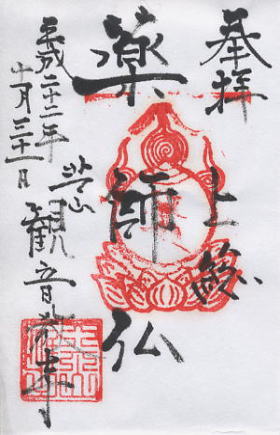 奉拝
上総
薬師仏
芝山
観音教寺
平成二十二年
十月三十一日